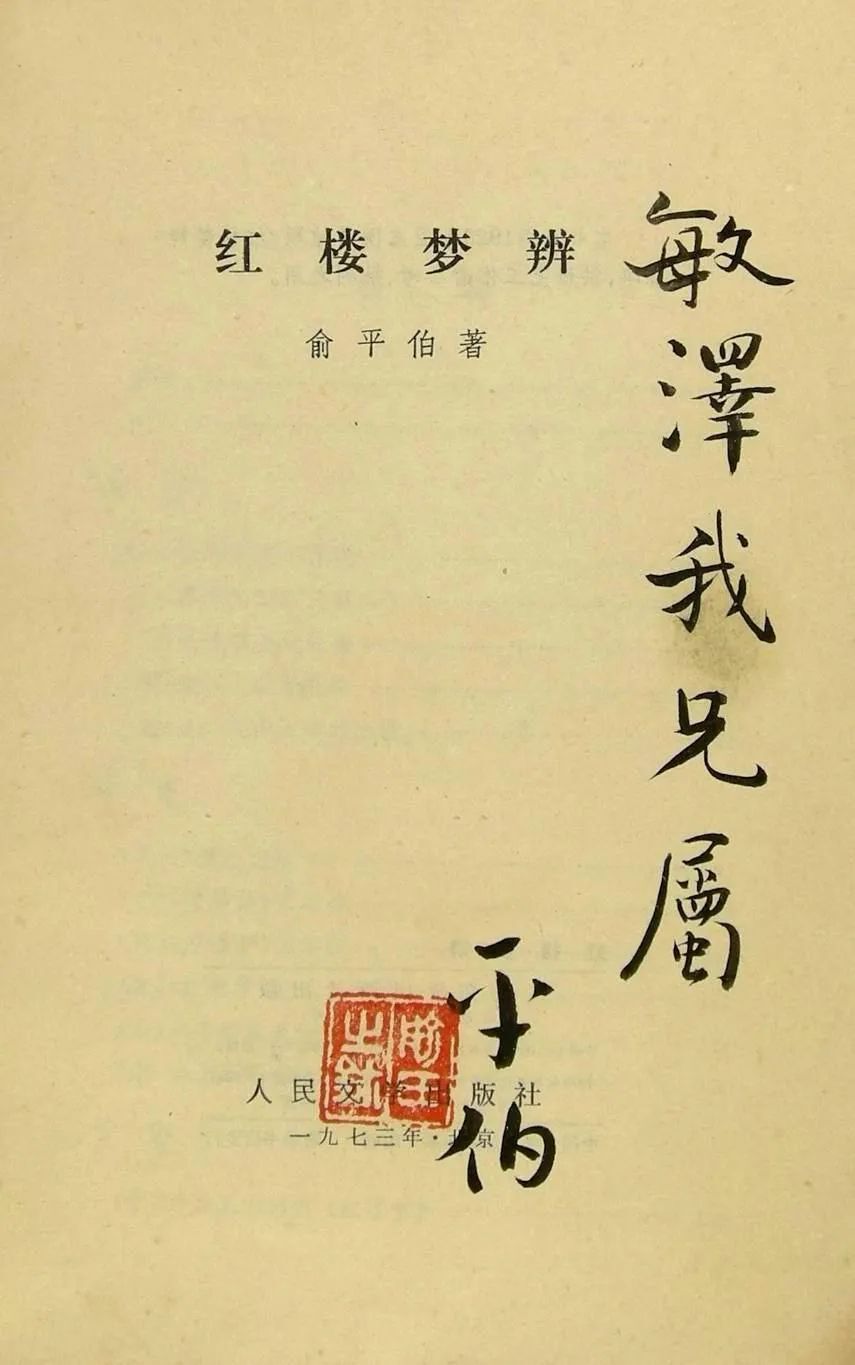 红楼梦辨
俞平伯著
敏澤我兄屬
平伯
人民文学出版社
一九七三年·北京